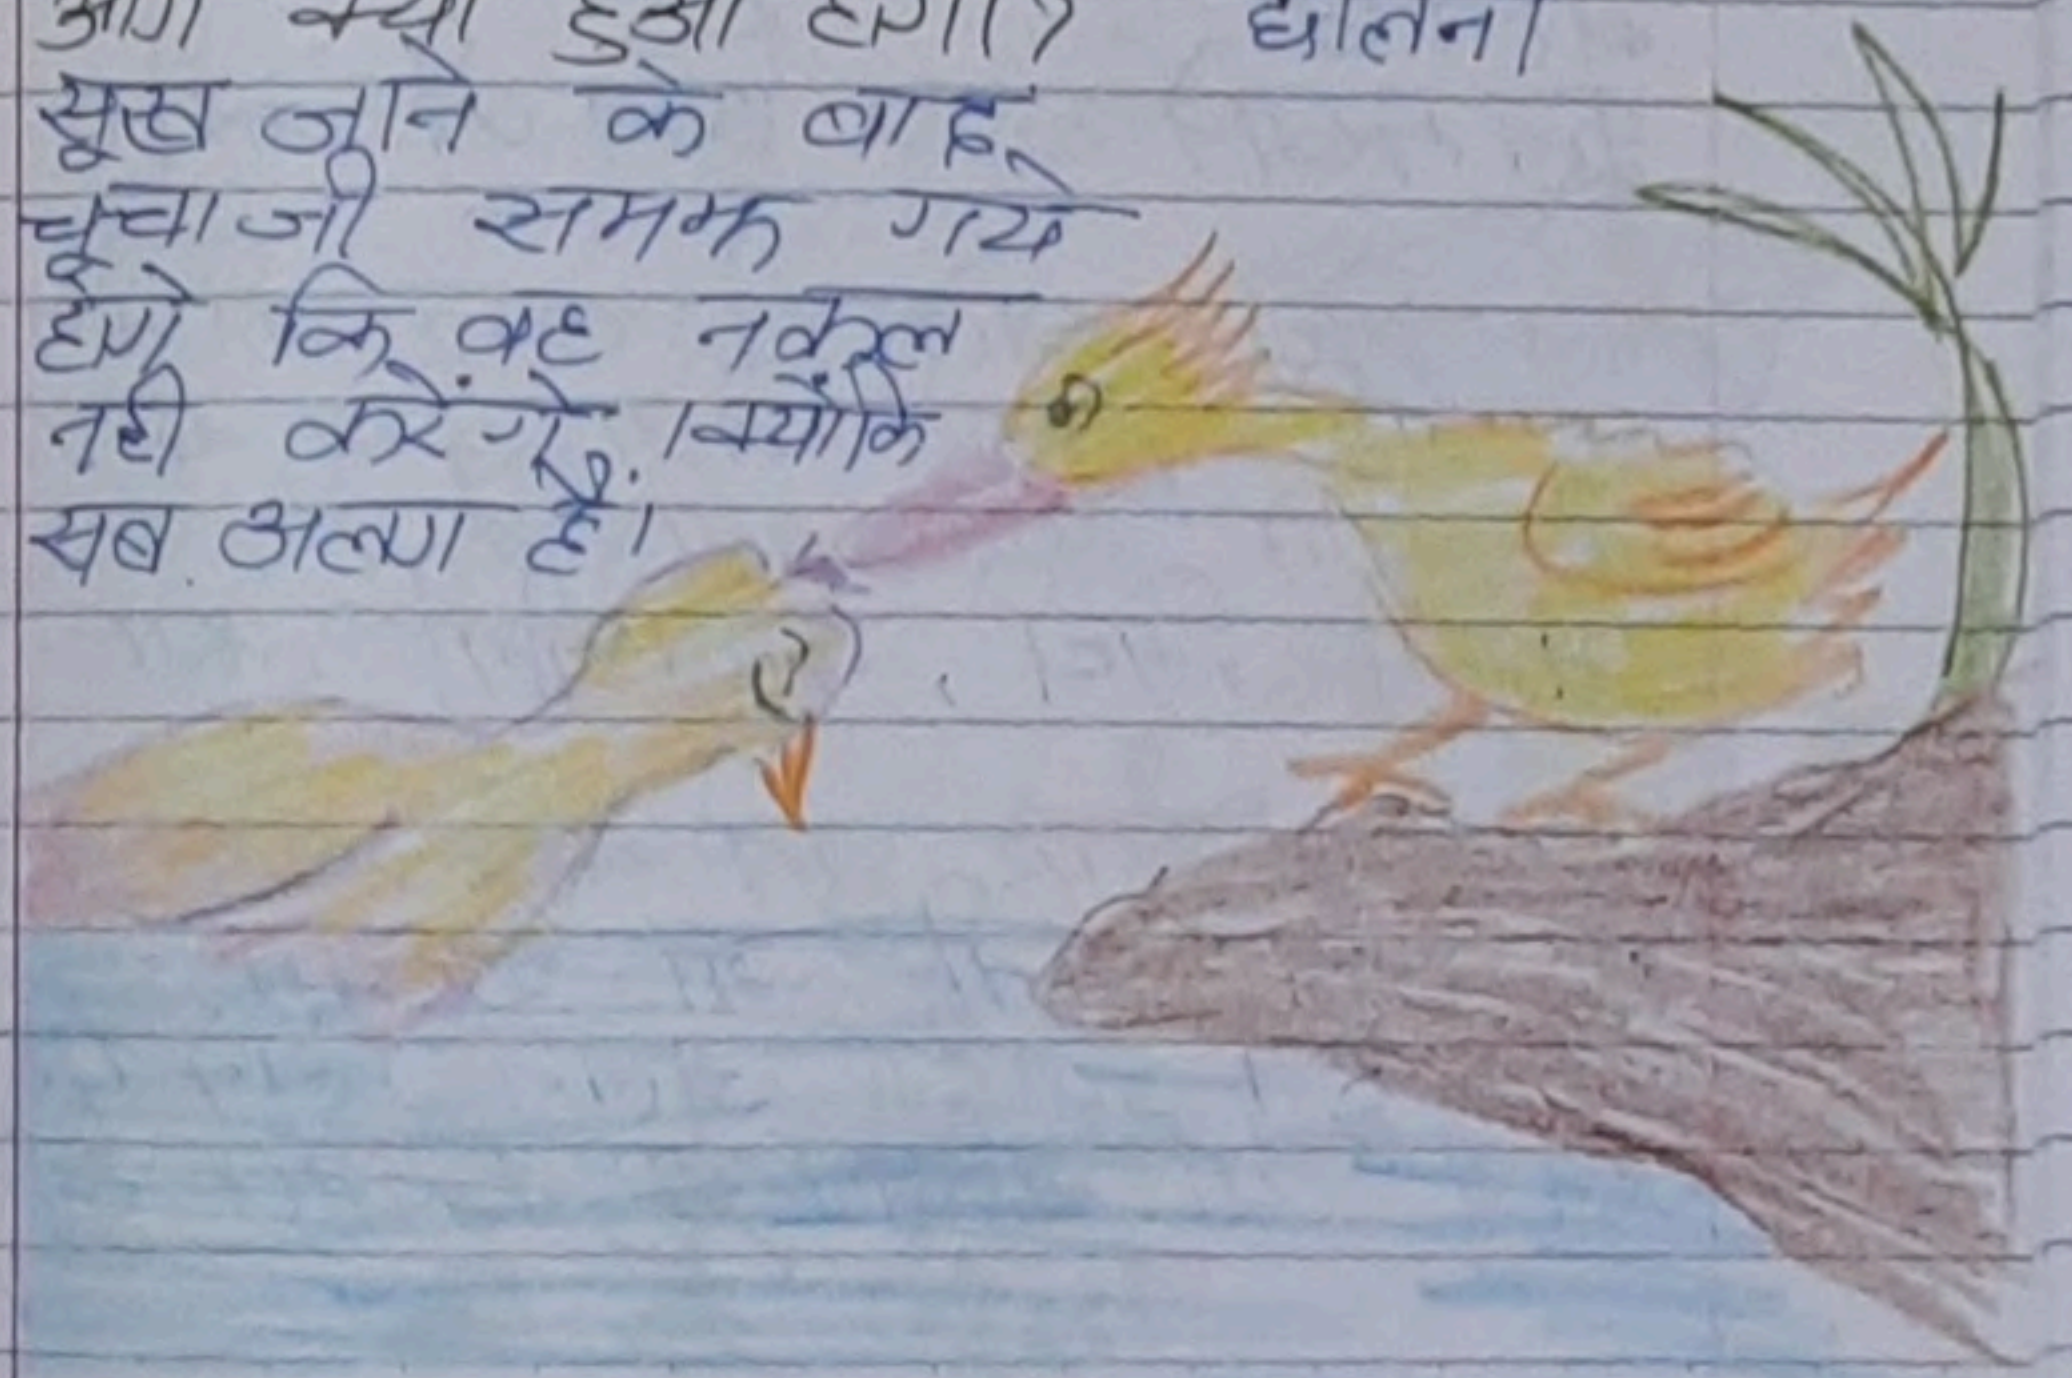 आगे क्या हुआ होगा?
सूख जाने के बाद
चूचा जी समझ गये
होगे कि वह नकल
नही करेंगे। क्योंकि
सब अलग है।